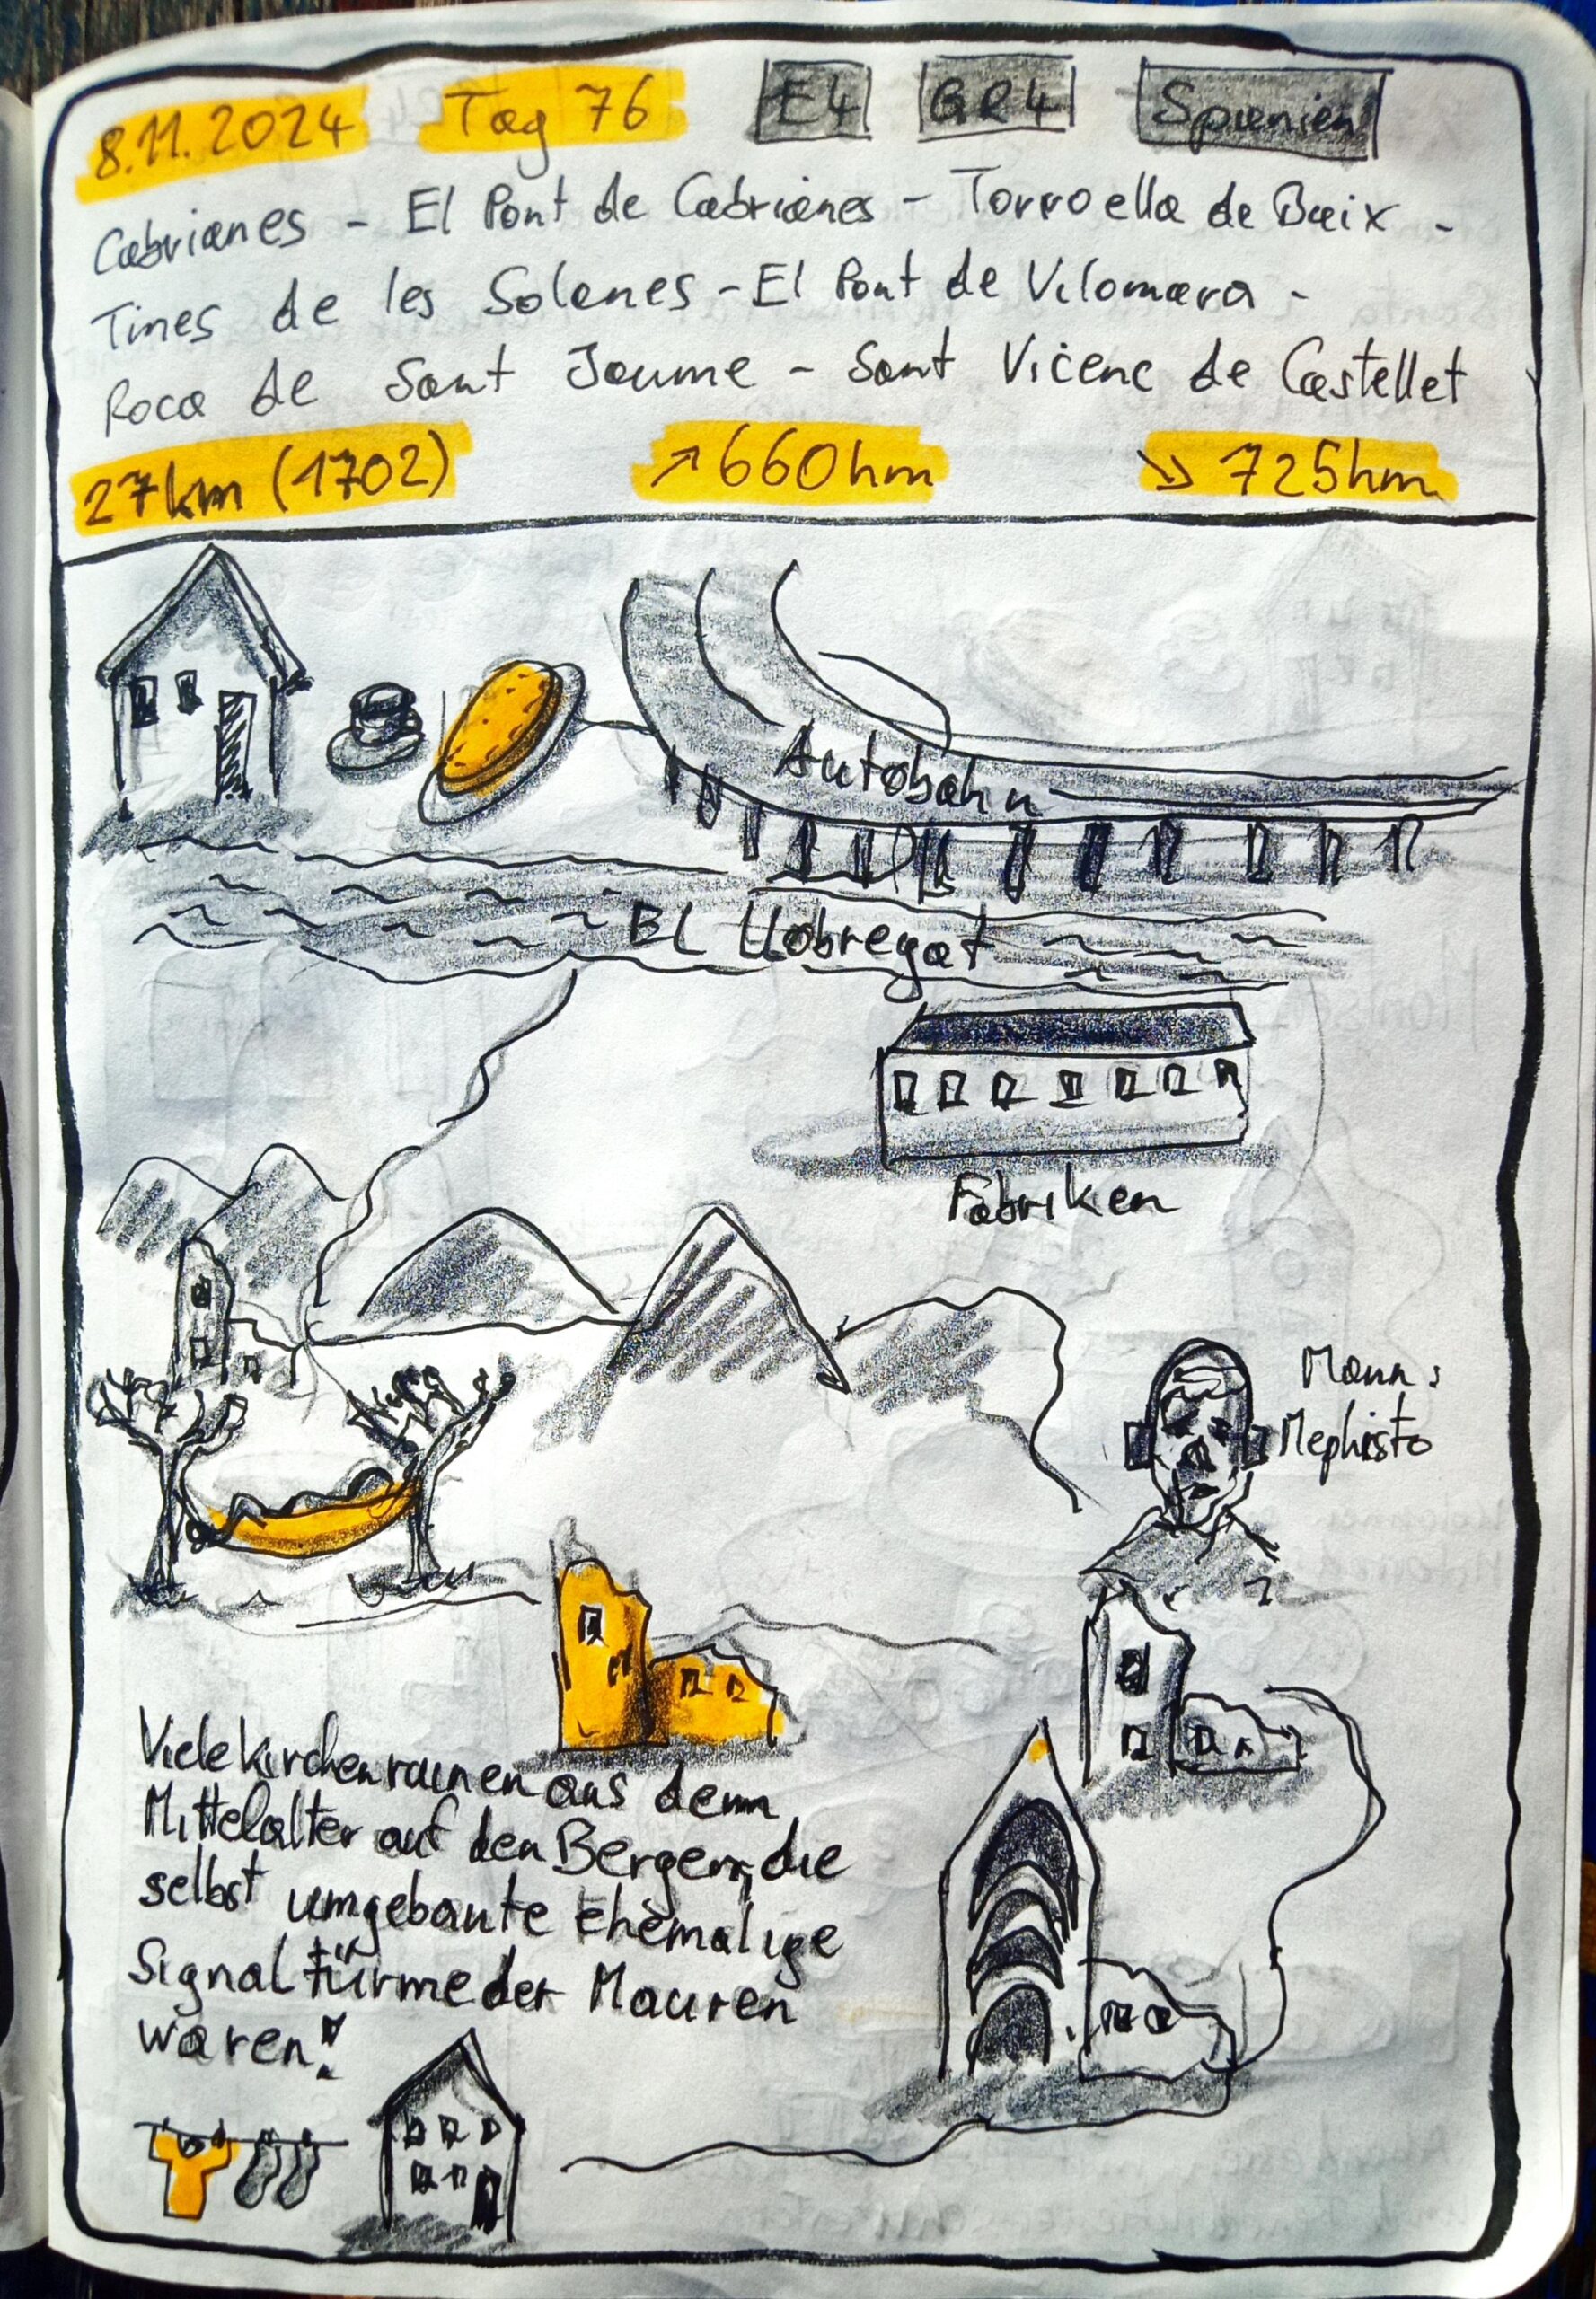 8.11.2024 Tag 76 E4 GR4 Spanien
Cabrianes - El Pont de Cabrianes - Torroella de Baix -
Tines de les Solanes - El Pont de Vilomara -
Roca de Sant Jaume - Sant Vicenc de Castellet
27km (1702) ↗660hm ↘725hm
Autobahn
El Llobregat
Fabriken
Mann:
Mephisto
Viele Kirchenruinen aus dem
Mittelalter auf den Bergen, die
selbst umgebaute ehemalige
Signaltürme der Mauren
waren!